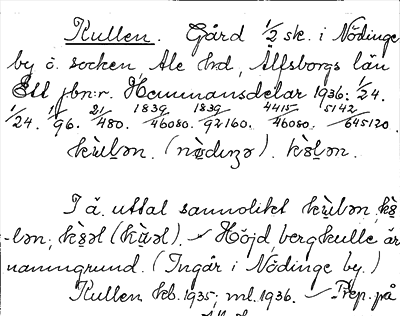 Kullen. Gård 1/2 sk. i Nödinge
by o. socken Ale hd, Älfsborgs län
Ett jbn:r. Hemmansdelar 1936: 1/24.
1/24. 1/96. 21/480. 1839/46080. 1839/92160. 4415/46080. 5142/645120.
(nödiŋə).
I ä. uttal sannolikt
Höjd, bergkulle är
namngrund. (Ingår i Nödinge by.)
Kullen kb. 1935; ml. 1936. Prep. på